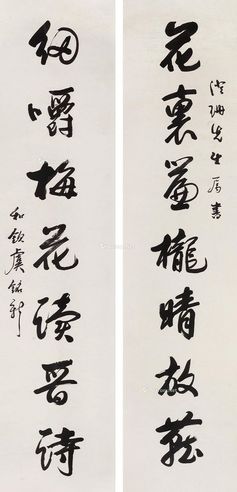 花裏簾櫳晴放燕
珊先生属書
細嚼梅花讀晉詩
和欽虞銘新